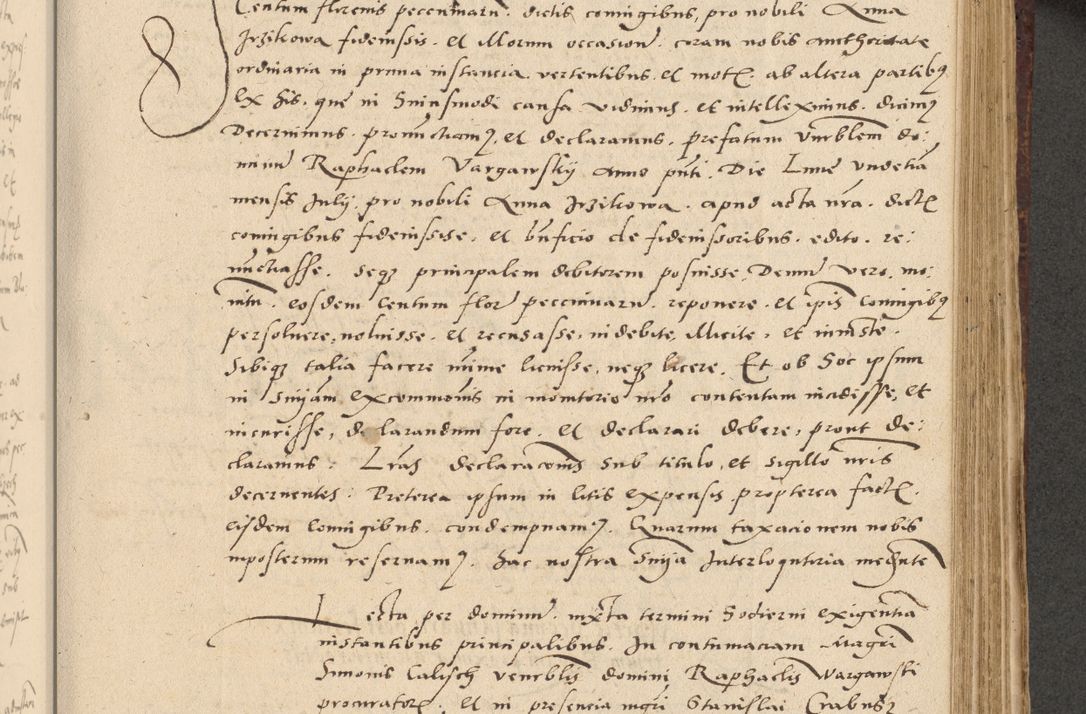 Centum florenis pecuniarũ. dictis coniugibus, pro nobili Anna
Irzikowa fideiussis. et illorum occasioñ. coram nobis aucthoritate
ordinaria in prima instancia vertentibus. et mot. ab altera partibꝯ
Ex his. que in huiusmodi causa vidimus. et intelleximus. dicimꝯ
Decernimus. pronūctiamꝯ. et declaramus. prefatum Vnrblem do:
minũ Raphaelem Vargawsky Anno pñti. Die Lune vndetiã
mensis Julij. pro nobili Anna Irzikowa. apud acta nrã. dict
coniugibus fideiussisse. et bñficio de fideiussoribus. edito. re:
nũctiasse. seqꝫ principalem debitorem posuisse, Demũ vero. mo:
nitũ. eosdem Centum flor peccuniarũ. reponere. et ipis Coniugibꝯ
persoluere, noluisse. et recusasse, indebite, illicite, et iniuste.
Sibiqꝫ talia facere mĩme licuisse, neqꝫ licere. Et ob hoc ipsum
in sniiam excommonis in monitorio nrõ contentam incidisse, et
incurisse, declarandum fore. et declarari debere, prout de:
claramus: Lras declaracoñis sub titulo, et sigillo nris
decernentes: Preterea ipsum in litis expensis propterea fact.
eisdem Coniugibus. condempnamꝯ. Quarum taxacionem nobis
inposterum reseruamꝯ. hac nostra sniia Interloqutiria mediñte
Lecta per dominũ. iuxta termini hodierni exigentiã
instantibus principalibus. In contumaciam Magri
Simonis Calisch venrblis domini Raphaelis Wargawsti
procurator. et in presencia mgri Stanislai Crabusꝫ